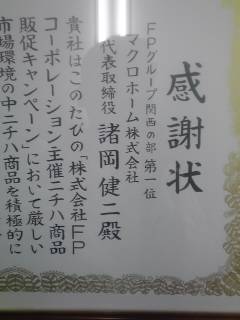 感謝状
FPグループ関西の部 第一位
マクロホーム株式会社
代表取締役 諸岡健二殿
貴社はこのたびの「株式会社FP
コーポレーション主催ニチハ商品
販促キャンペーン」において厳しい
市場環境の中ニチハ商品を積極的に